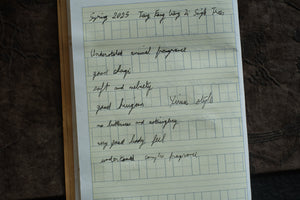 Spring 2025 Tong Fang Wang Zi Single Tree
Understated animal fragrance
good chaqi
soft and velvety
good huigan Yiwu style
no bitterness and astringency
very good body feel
understated complex fragrance